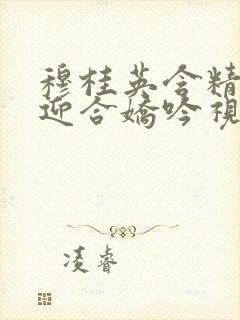 穆桂英含精
迎合嬌吟視
凌睿